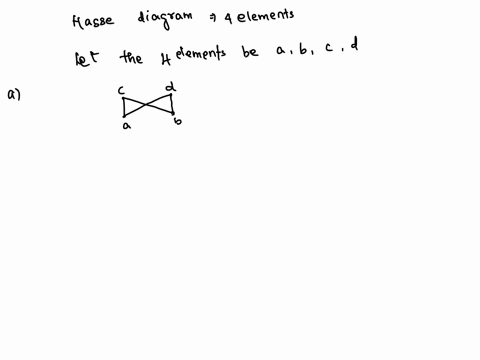 Hasse diagram ⇒ 4 elements
Let the 4 elements be a, b, c, d
a)
c d
a b